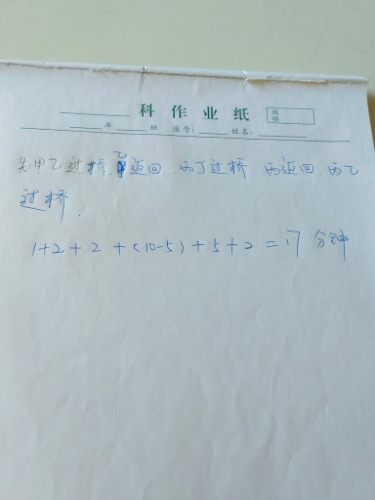 科作业纸
年 班 座号: 姓名:
先甲乙过桥 乙返回 丙丁过桥 丙返回 丙乙
过桥.
1+2+2+(10-5)+5+2=17 分钟